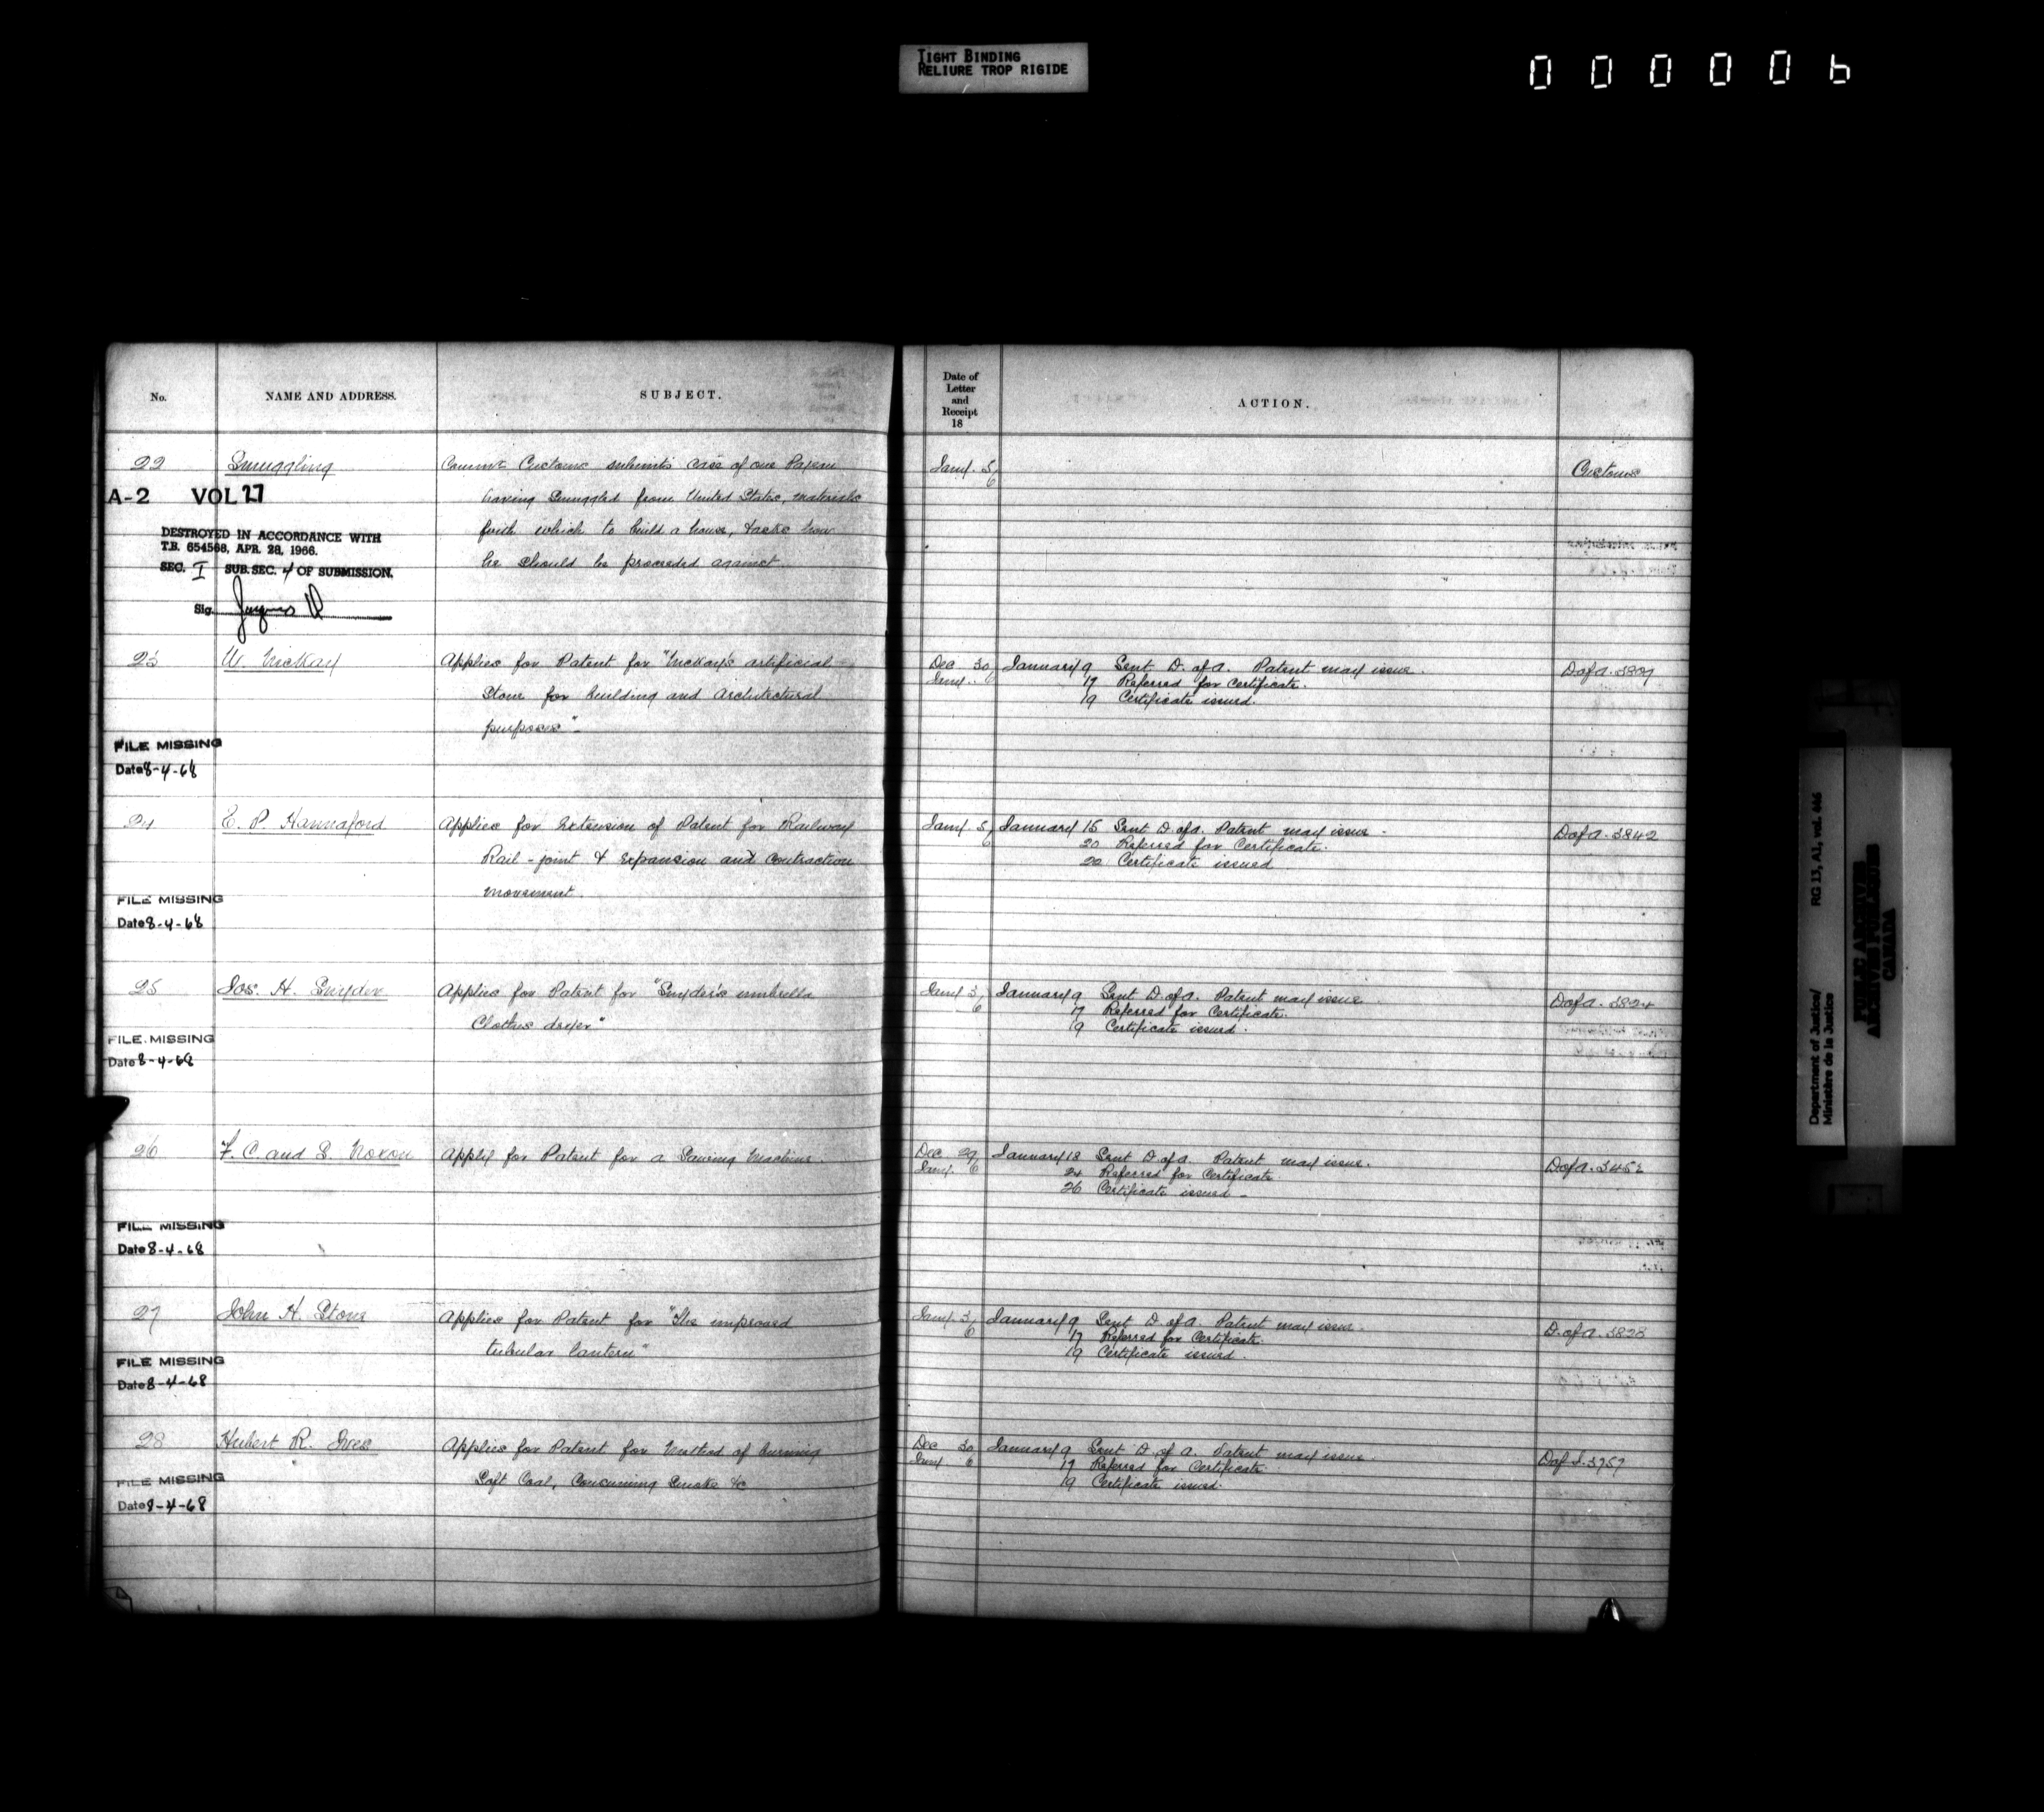 TIGHT BINDING
RELIURE TROP RIGIDE
000006
No.
NAME AND ADDRESS.
SUBJECT.
Date of
Letter
and
Receipt
18
ACTION.
22 Smuggling
Customs submits case of one
having smuggled from United States, materials
with which to build a house, & asks how
he should be proceeded against.
Jany. 5
6
Customs
A-2 VOL 27
DESTROYED IN ACCORDANCE WITH
T.B. 654568, APR. 28, 1966.
SEC. I SUB. SEC. 4 OF SUBMISSION.
Sig.
23 W. McKay Applies for Patent for "McKay's artificial
Stone for building and Architectural
purposes"
Dec 30 January 9 Sent D. of A. Patent may issue.
Jany. 6 17 Referred for Certificate.
19 Certificate issued.
D of A. 3809
FILE MISSING
Date 8-4-68
24 E. P. Hannaford Applies for Extension of Patent for Railway
Rail-joint & expansion and contraction
movement.
Jany 5 January 15 Sent D. of A. Patent may issue.
6 20 Referred for Certificate.
22 Certificate issued
D of A. 3842
FILE MISSING
Date 8-4-68
25 Jos. H. Snyder Applies for Patent for "Snyder's umbrella
Clothes dryer"
Jany 3 January 9 Sent D. of A. Patent may issue
6 17 Referred for Certificate.
19 Certificate issued.
D of A. 3824
FILE MISSING
Date 8-4-68
26 F. C. and S. Noxon Apply for Patent for a Sawing Machine.
Dec 29 January 18 Sent D. of A. Patent may issue.
Jany. 6 24 Referred for Certificate.
26 Certificate issued -
D of A.
FILE MISSING
Date 8-4-68
27 John H. Stone Applies for Patent for "The improved
tubular lantern"
Jany. 3 January 9 Sent D. of A. Patent may issue.
6 17 Referred for Certificate.
19 Certificate issued.
D. of A. 3828
FILE MISSING
Date 8-4-68
28 Hubert R. Ives Applies for Patent for Method of burning
Soft Coal, Consuming Smoke &c
Dec 30 January 9 Sent D. of A. Patent may issue.
Jany 6 17 Referred for Certificate
19 Certificate issued.
FILE MISSING
Date 8-4-68
Department of Justice/
Ministère de la Justice
RG 13, A1, vol. 446
PUBLIC ARCHIVES
ARCHIVES PUBLIQUES
CANADA